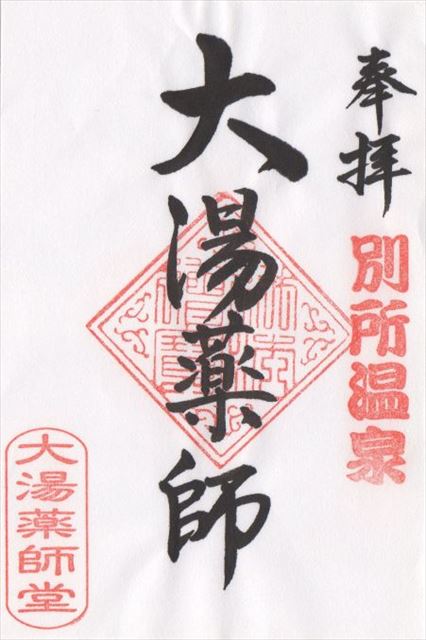 奉拝
別所温泉
大湯薬師
大湯薬師堂